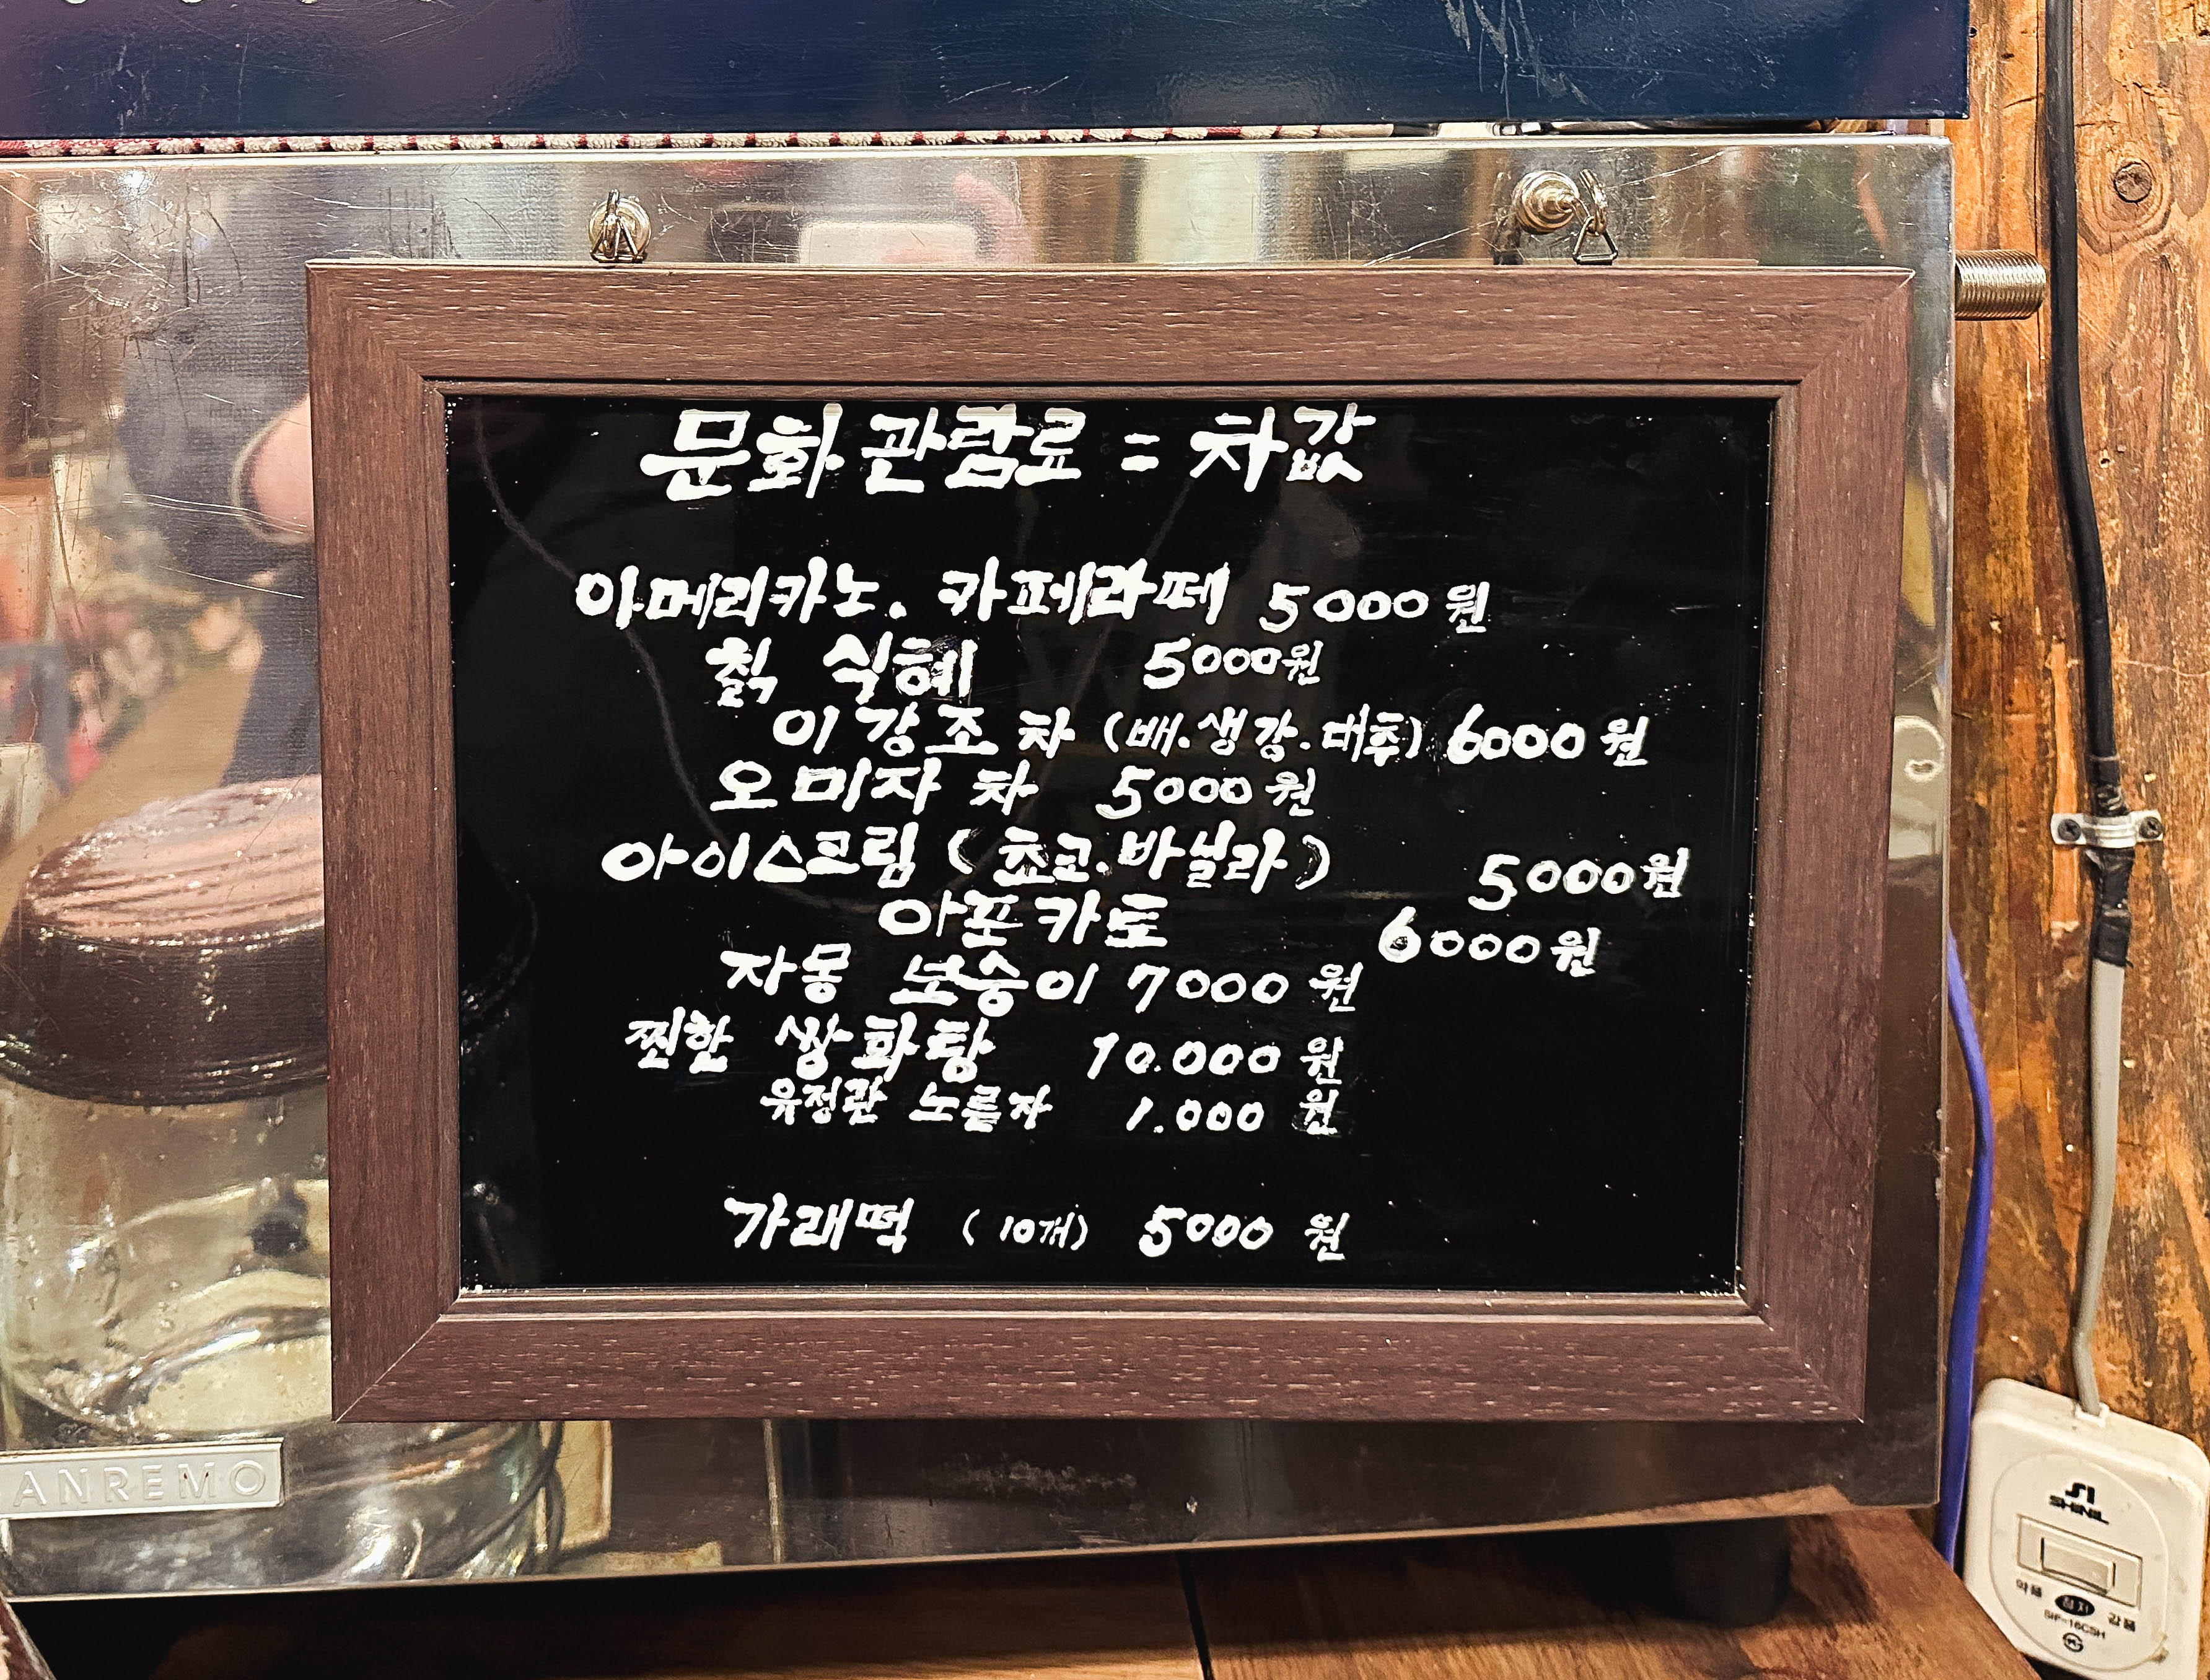 문화 관람료 = 차값
아메리카노. 카페라떼 5000원
칡 식혜 5000원
이강조 차 (배.생강.대추) 6000원
오미자 차 5000원
아이스크림 (쵸코.바닐라) 5000원
아포카토 6000원
자몽 보숭이 7000원
찐한 쌍화탕 10.000원
유정란 노른자 1.000원
가래떡 (10개) 5000원
ANREMO
SHINIL
약풍 정지 강풍
SIF-16CSH